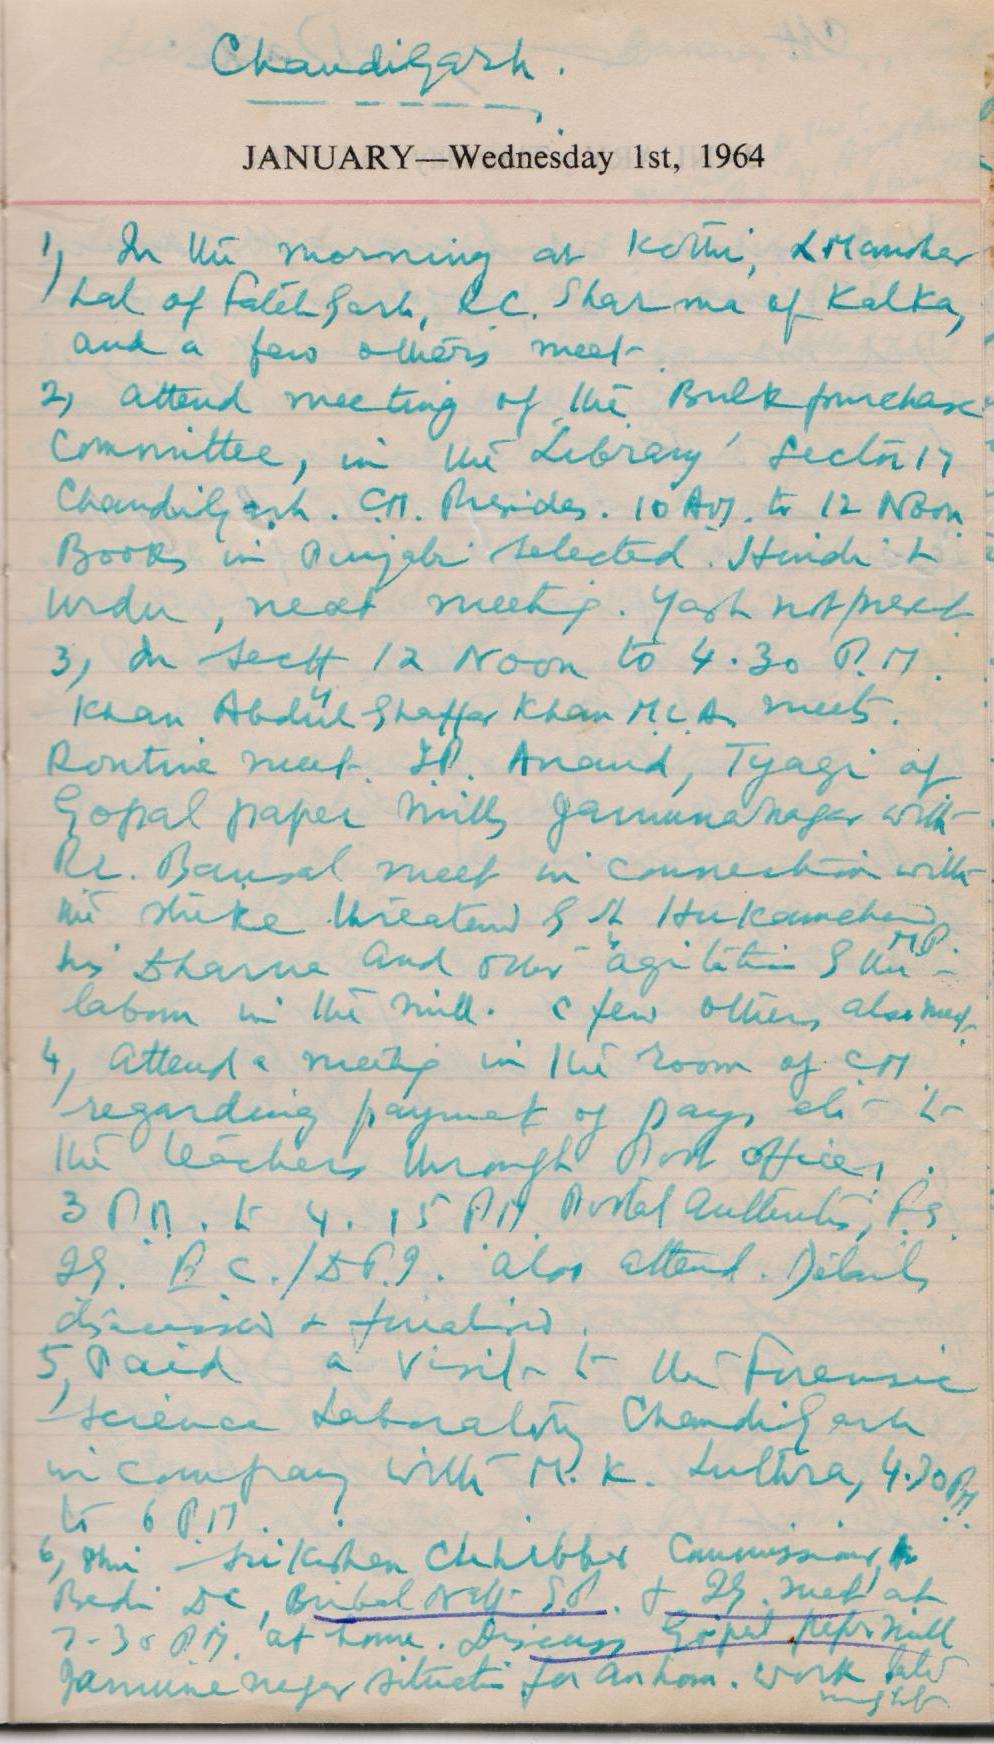 Chandigarh.
JANUARY—Wednesday 1st, 1964
1, In the morning at Kothi, L Manohar
Lal of Fatehgarh, R.C. Sharma of Kalka,
and a few others meet.
2, Attend meeting of the Bulk purchase
Committee, in the 'Library' Sector 17
Chandigarh. C.M. Presides. 10 A.M. to 12 Noon
Books in Punjabi selected. Hindi &
Urdu, next meeting. Yash not present
3, In Sectt 12 Noon to 4.30 P.M.
Khan Abdul Ghaffar Khan M.L.A. meets.
Routine meet. Anand, Tyagi of
Gopal paper mills Jamunanagar with
Bansal meet in connection with
the strike threatened by Sh Hukamchand
M.P.
his Dharna and other agitation by the
labour in the mill. a few others also meet.
4, Attend a meeting in the room of CM
regarding payment of pays etc to
the teachers through Post offices.
3 P.M. to 4.15 PM Postal Authorities,
also attend. Details
discussed & finalised.
5, Paid a visit to the Forensic
Science Laboratory Chandigarh
in company with M. K. Luthra, 4.30 PM
to 6 P.M.
6, Shri Sri Kishen Chhibber Commissioner,
Bedi DC, Birbal Nath S.P. & IG. meet at
7-30 P.M. at home. Discuss Gopal paper mill
Jamuna nagar situation for an hour. Work late
night